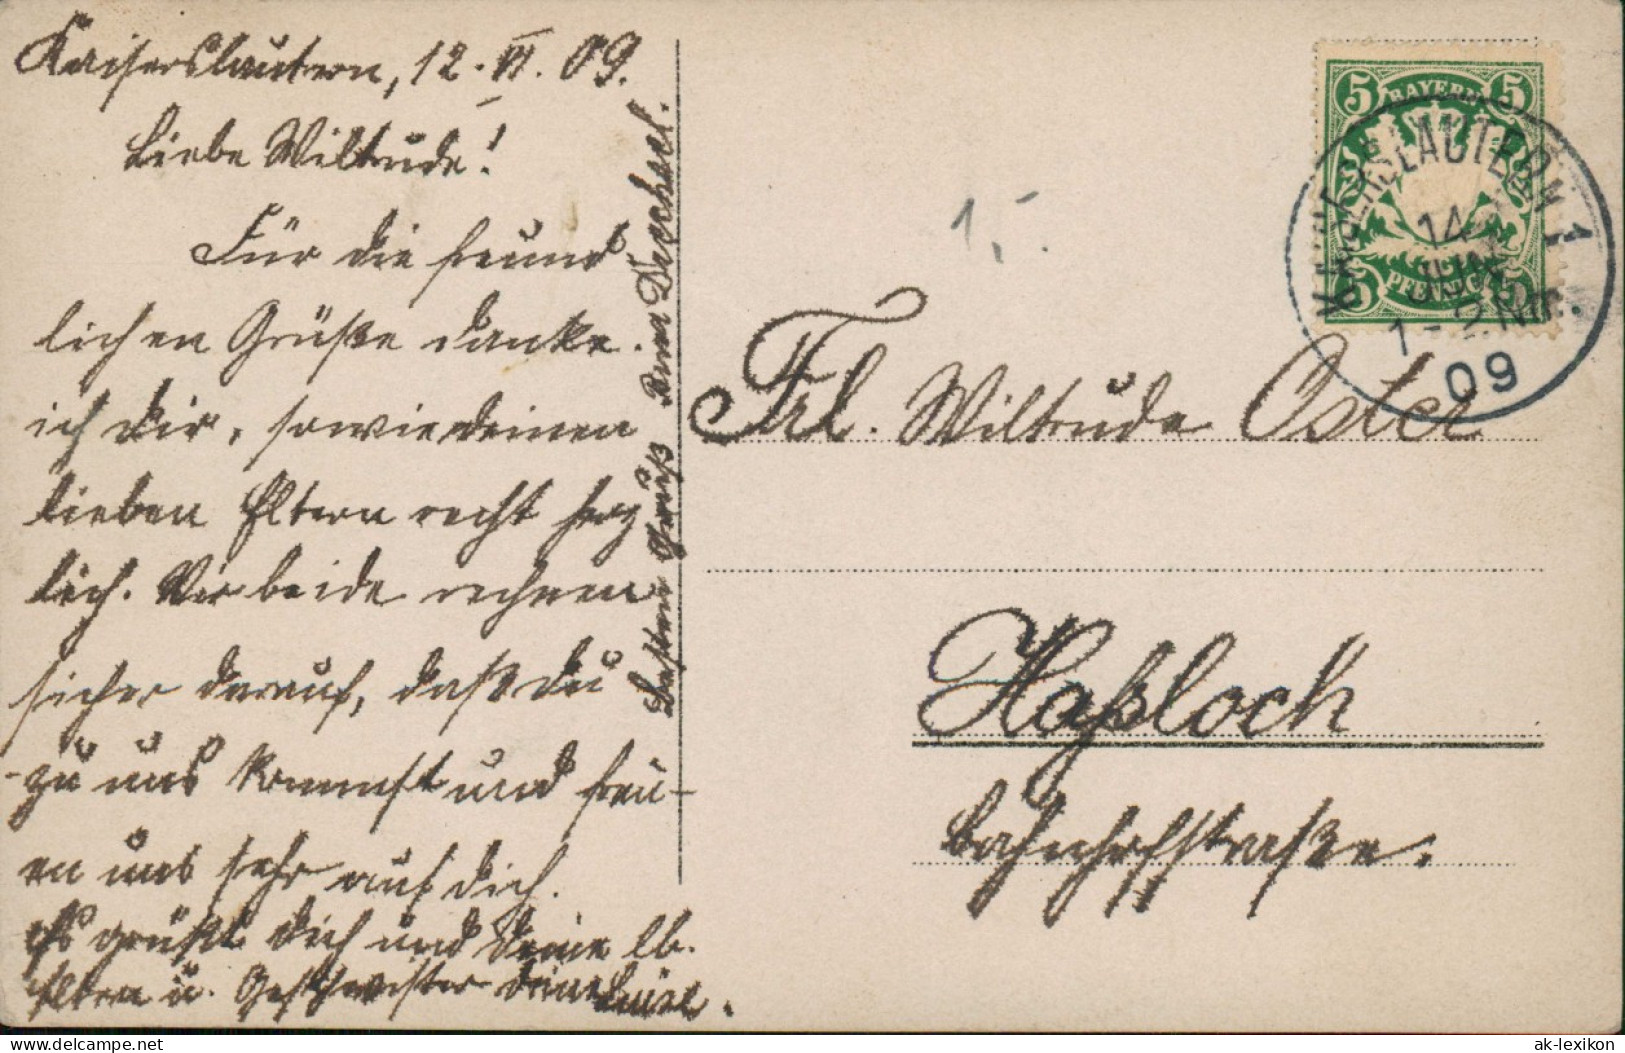 Kaiserslautern, 12. VI. 09.
Liebe Wiltrude!
Für die freund
lichen Grüße danke
ich dir, sowie deinen
lieben Eltern recht herz
lich. Wir beide rechnen
sicher darauf, daß du
zu uns kommst und freu-
en uns sehr auf dich.
Es grüßt dich und deine lb.
Eltern u. Geschwister deine Luise.
Besten Gruß Anna
1,-
BAYERN
5 5
PFENNIG
5 5
KAISERSLAUTERN 1
14
JUN
1-2 Nm.
09
Frl. Wiltrude Oster
Haßloch
Bahnhofstraße.
Besuchen Sie: www.ak-lexikon.de
ak-lexikon